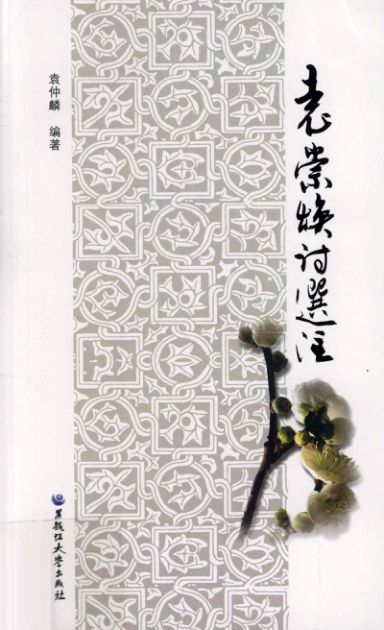 袁崇焕诗選注
袁仲麟 编著
黑龙江大学出版社